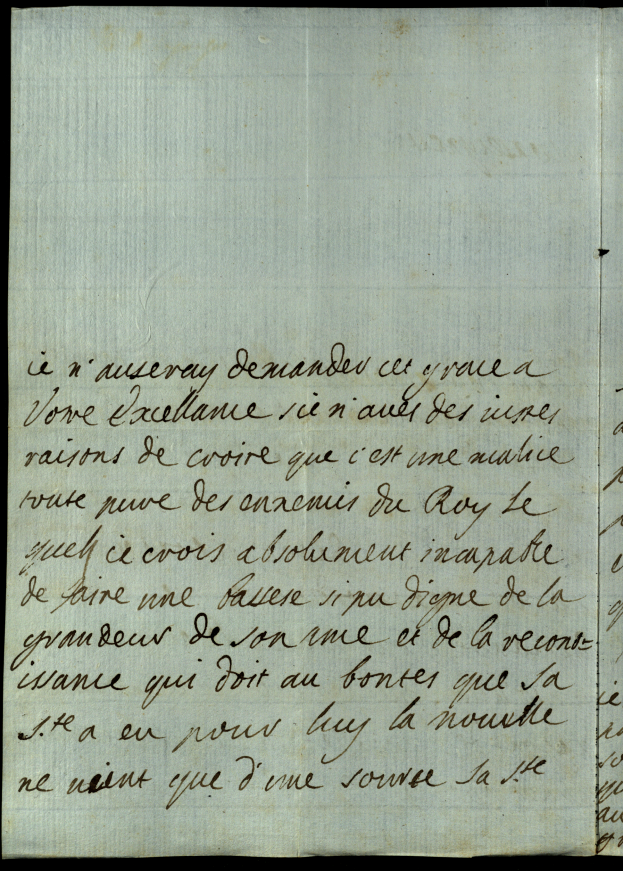 ie n'auseray demander cet grace a
Votre Excellance si ie n'aues des iustes
raisons de croire que c'est une malice
toute pure des ennemis du Roy le
quel ie crois absolument incapable
de faire une bassese si pu digne de la
grandeur de son ame et de la reconoi=
issance qui doit au bontes que sa
S.te a eu pour luy la nouvelle
ne vient que d'une source sa S.te